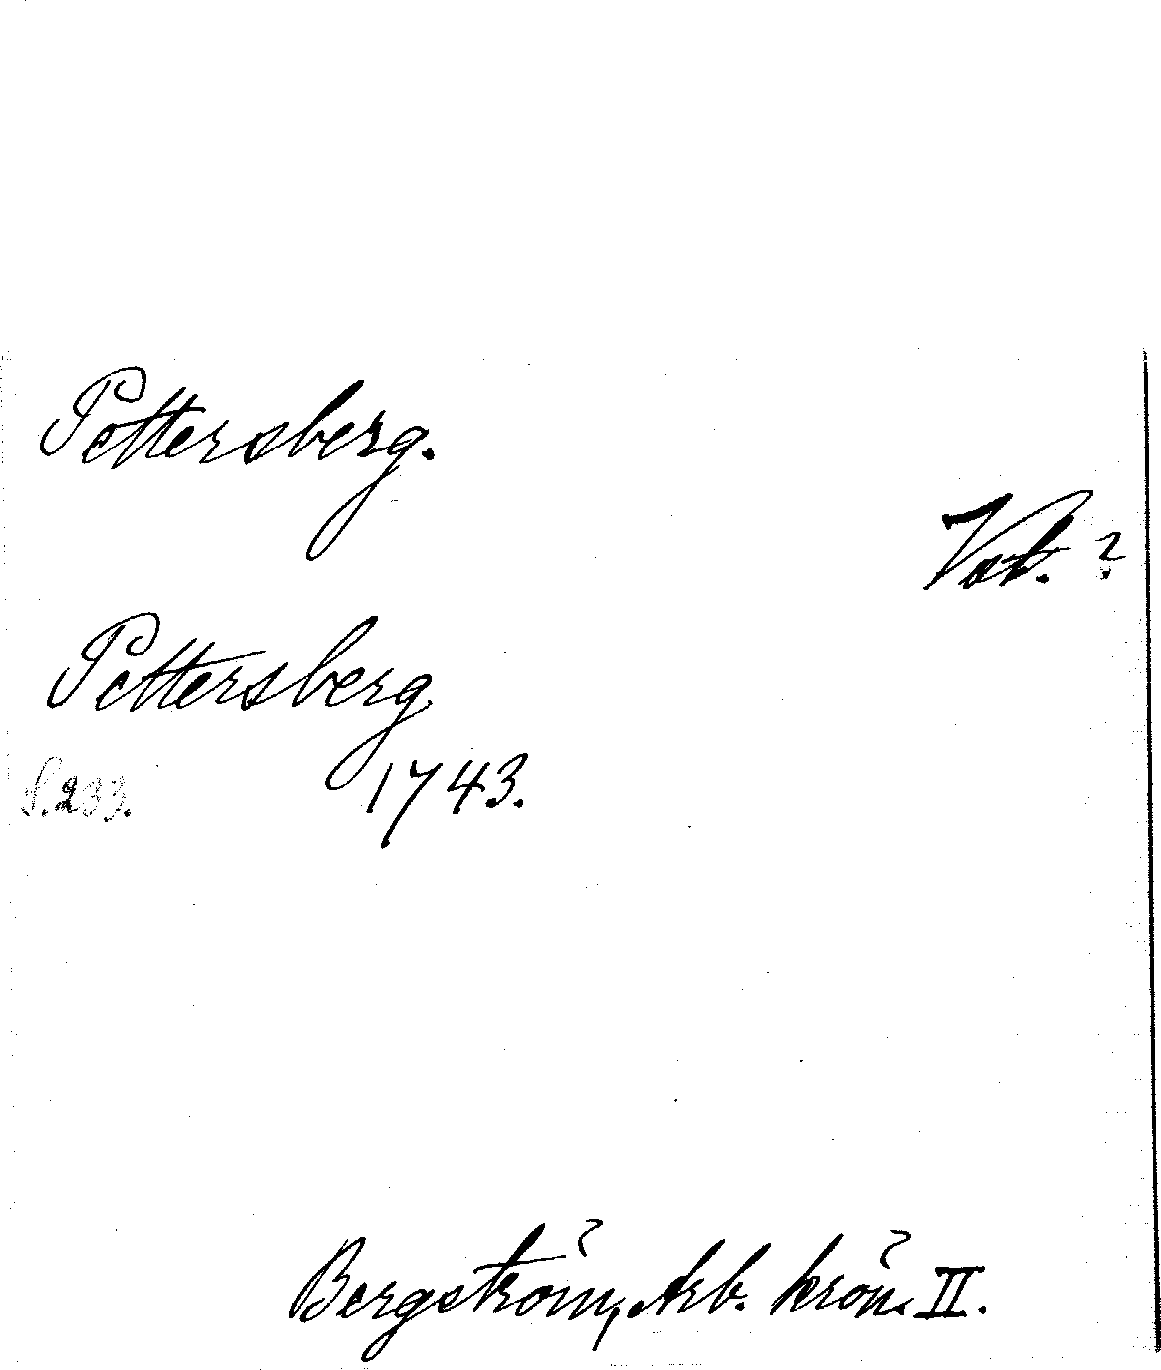 Pettersberg.
Vst. ?
Pettersberg
S. 233.
1743.
Bergström, Arb. krön. II.